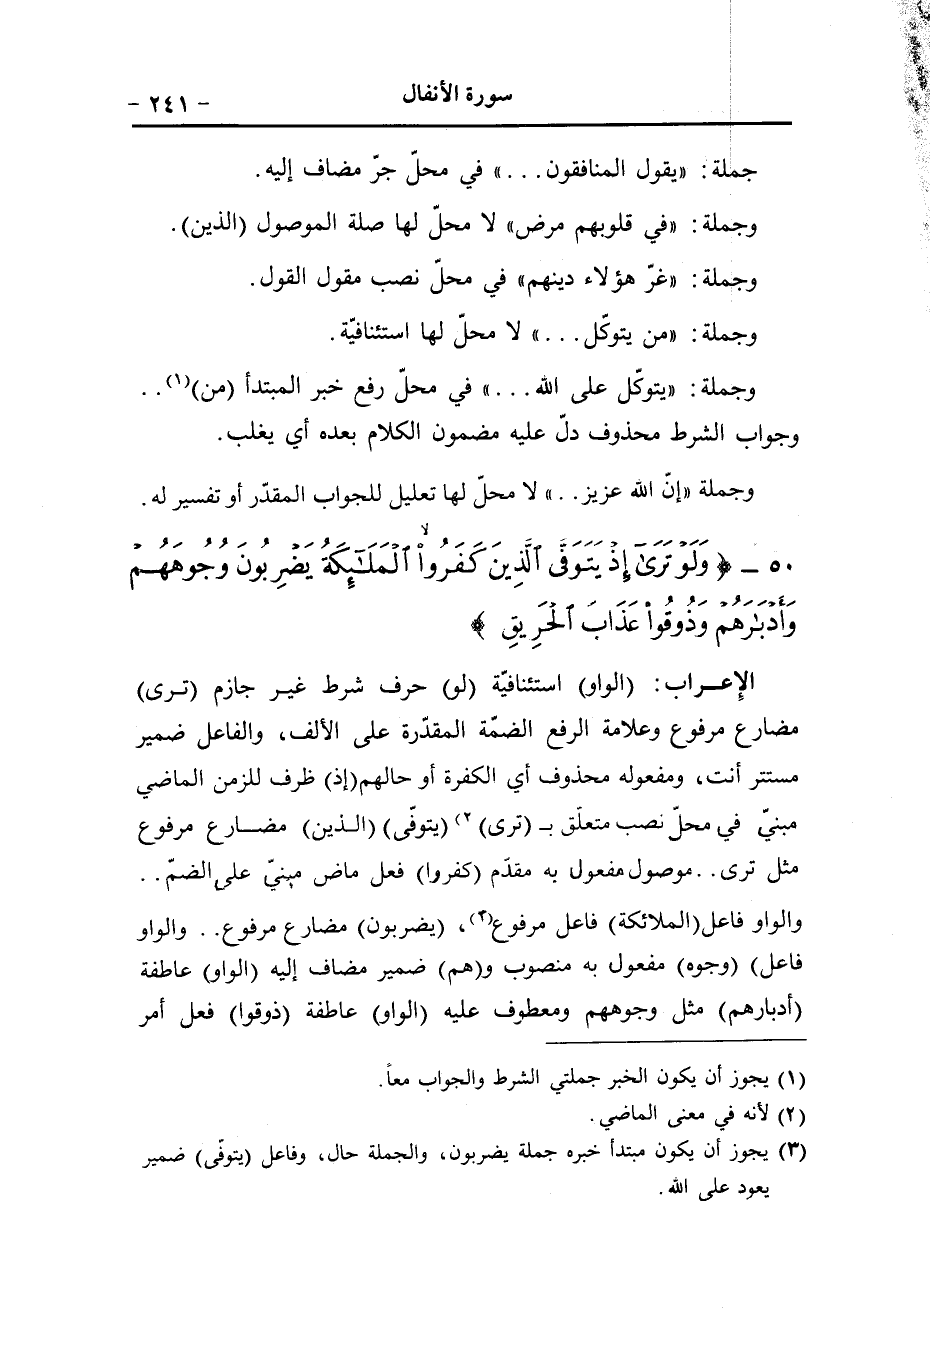 سورة الأنفال
- ٢٤١ -
جملة: «يقول المنافقون...» في محلّ جرّ مضاف إليه.
وجملة: «في قلوبهم مرض» لا محلّ لها صلة الموصول (الذين).
وجملة: «غرّ هؤلاء دينهم» في محلّ نصب مقول القول.
وجملة: «من يتوكّل...» لا محلّ لها استئنافيّة.
وجملة: «يتوكّل على الله...» في محلّ رفع خبر المبتدأ (من)(١)..
وجواب الشرط محذوف دلّ عليه مضمون الكلام بعده أي يغلب.
وجملة «إنّ الله عزيز..» لا محلّ لها تعليل للجواب المقدّر أو تفسير له.
٥٠ ـ ﴿ وَلَوْ تَرَىٰٓ إِذْ يَتَوَفَّى ٱلَّذِينَ كَفَرُوا۟ ۙ ٱلْمَلَـٰٓئِكَةُ يَضْرِبُونَ وُجُوهَهُمْ
وَأَدْبَـٰرَهُمْ وَذُوقُوا۟ عَذَابَ ٱلْحَرِيقِ ﴾
الإعـراب: (الواو) استئنافيّة (لو) حرف شرط غير جازم (ترى)
مضارع مرفوع وعلامة الرفع الضمّة المقدّرة على الألف، والفاعل ضمير
مستتر أنت، ومفعوله محذوف أي الكفرة أو حالهم(إذ) ظرف للزمن الماضي
مبنيّ في محلّ نصب متعلّق بـ (ترى) ٢) (يتوفّى) (الذين) مضارع مرفوع
مثل ترى.. موصول مفعول به مقدّم (كفروا) فعل ماض مبنيّ على الضمّ..
والواو فاعل(الملائكة) فاعل مرفوع(٣)، (يضربون) مضارع مرفوع.. والواو
فاعل) (وجوه) مفعول به منصوب و(هم) ضمير مضاف إليه (الواو) عاطفة
(أدبارهم) مثل وجوههم ومعطوف عليه (الواو) عاطفة (ذوقوا) فعل أمر
(١) يجوز أن يكون الخبر جملتي الشرط والجواب معاً.
(٢) لأنه في معنى الماضي.
(٣) يجوز أن يكون مبتدأ خبره جملة يضربون، والجملة حال، وفاعل (يتوفّى) ضمير
يعود على الله.